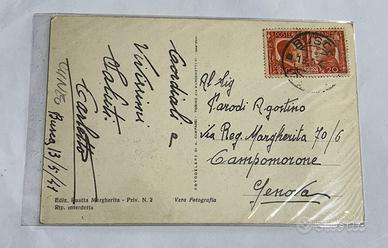 Cordiali e
Vivissimi
Saluti
Carlotto
Busca 13/5/41
Al Sig
Parodi Agostino
Via Reg. Margherita 70/6
Campomorone
Genova
BUSCA
POSTE
20
Ediz. Rosetta Margherita - Priv. N. 2
Vera Fotografia
Rip. interdetta
subito